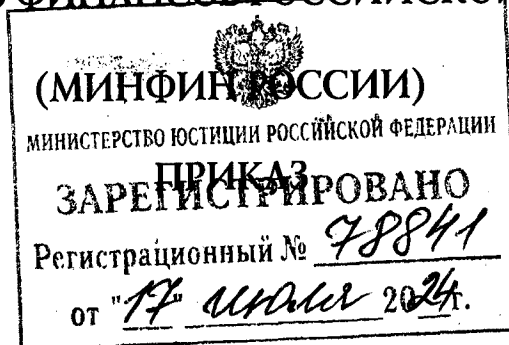 ФИНАНСОВ РОССИЙСКОЙ
(МИНФИН РОССИИ)
МИНИСТЕРСТВО ЮСТИЦИИ РОССИЙСКОЙ ФЕДЕРАЦИИ
ПРИКАЗ
ЗАРЕГИСТРИРОВАНО
Регистрационный № 78841
от "17" июля 2024г.